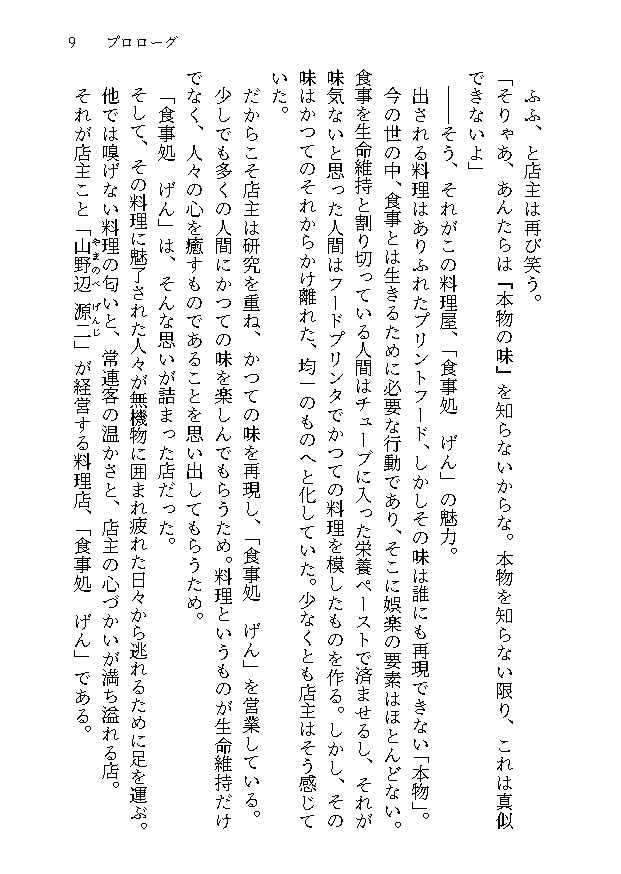 9 プロローグ
ふふ、と店主は再び笑う。
「そりゃあ、あんたらは『本物の味』を知らないからな。本物を知らない限り、これは真似
できないよ」
――そう、それがこの料理屋、「食事処 げん」の魅力。
出される料理はありふれたプリントフード、しかしその味は誰にも再現できない「本物」。
今の世の中、食事とは生きるために必要な行動であり、そこに娯楽の要素はほとんどない。
食事を生命維持と割り切っている人間はチューブに入った栄養ペーストで済ませるし、それが
味気ないと思った人間はフードプリンタでかつての料理を模したものを作る。しかし、その
味はかつてのそれからかけ離れた、均一のものへと化していた。少なくとも店主はそう感じて
いた。
だからこそ店主は研究を重ね、かつての味を再現し、「食事処 げん」を営業している。
少しでも多くの人間にかつての味を楽しんでもらうため。料理というものが生命維持だけ
でなく、人々の心を癒すものであることを思い出してもらうため。
「食事処 げん」は、そんな思いが詰まった店だった。
そして、その料理に魅了された人々が無機物に囲まれ疲れた日々から逃れるために足を運ぶ。
他では嗅げない料理の匂いと、常連客の温かさと、店主の心づかいが満ち溢れる店。
それが店主こと「山野辺 源二」が経営する料理店、「食事処 げん」である。
やまのべ げんじ